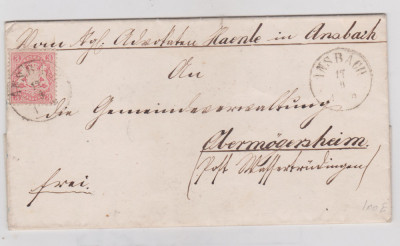 Vom Kgl. Advokaten Haenle in Ansbach
An
ANSBACH
17
9
die Gemeindeverwaltung
Obermögersheim.
(Post Wassertrüdingen)
frei.